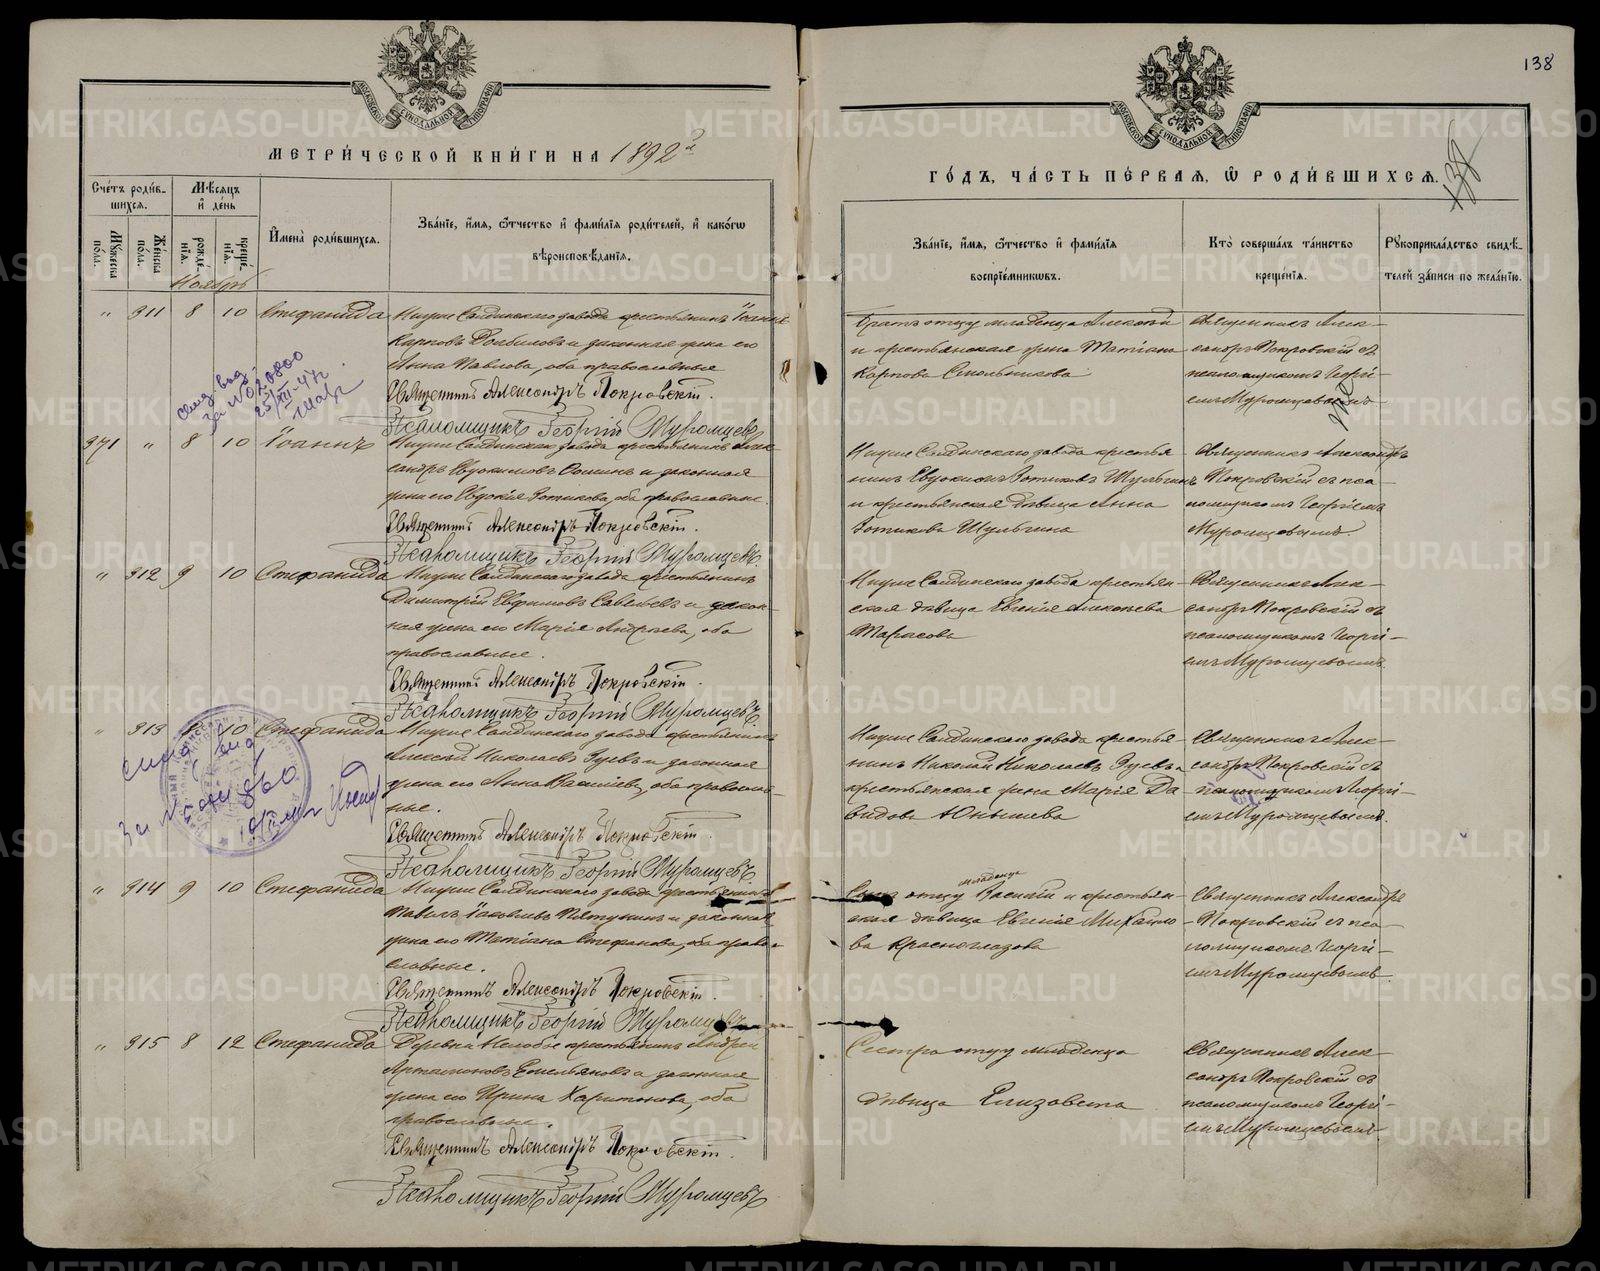 138
МЕТРИ́ЧЕСКОЙ КНИ́ГИ НА 1892й
ГО́ДЪ, ЧА́СТЬ ПЕ́РВАЯ, Ѿ РОДИ́ВШИХСѦ.
138
Сче́тъ роди́вшихсѧ.
Мѣ́сѧцъ и҆ де́нь
Мꙋ́жеска по́ла.
Же́нска по́ла.
рожде́нїѧ.
креще́нїѧ.
И҆мена̀ роди́вшихсѧ.
Зва́нїе, и҆́мѧ, ѻ҆́тчество и҆ фами́лїѧ роди́телей, и҆ како́гѡ
вѣроисповѣ́данїѧ.
Зва́нїе, и҆́мѧ, ѻ҆́тчество и҆ фами́лїѧ
воспрїе́мникѡвъ.
Кто̀ соверша́лъ та́инство
креще́нїѧ.
Рꙋкоприкла́дство свидѣ́телей за́писи по жела́нїю.
Ноябрь
" 311 8 10 Стефанида
Нижне Салдинскаго завода крестьянинъ Іоаннъ
Карповъ и законная жена его
Анна Павлова, оба православные
Священникъ Александръ Покровскій.
Псаломщикъ Георгій Муромцевъ
Братъ отцу младенца Алексѣй
и крестьянская жена Татіана
Карпова Смольникова
Священникъ Алек-
сандръ Покровскій съ
псаломщикомъ Георгі-
емъ Муромцевымъ
371 " 8 10 Іоаннъ
Нижне Салдинскаго завода крестьянинъ Алек-
сандръ Евдокимовъ и законная
жена его Евдокія Зотикова, оба православные.
Священникъ Александръ Покровскій.
Псаломщикъ Георгій Муромцевъ.
Нижне Салдинскаго завода крестья-
нинъ Евдокимъ Зотиковъ Шульгинъ
и крестьянская дѣвица Анна
Зотикова Шульгина
Священникъ Александръ
Покровскій съ пса-
ломщикомъ Георгіемъ
Муромцевымъ.
" 312 9 10 Стефанида
Нижне Салдинскаго завода крестьянинъ
Димитрій Ефимовъ Савельевъ и закон-
ная жена его Марія Андреева, оба
православные.
Священникъ Александръ Покровскій.
Псаломщикъ Георгій Муромцевъ.
Нижне Салдинскаго завода крестьян-
ская дѣвица Евгенія Алексѣева
Тарасова
Священникъ Алек-
сандръ Покровскій съ
псаломщикомъ Георгі-
емъ Муромцевымъ.
" 313 10 Стефанида
Нижне Салдинскаго завода крестьянинъ
Алексѣй Николаевъ Зуевъ и законная
жена его Анна Васильева, оба православ-
ные.
Священникъ Александръ Покровскій.
Псаломщикъ Георгій Муромцевъ
Нижне Салдинскаго завода крестья-
нинъ Николай Николаевъ Зуевъ и
крестьянская жена Марія Да-
видова Юнышева
Священникъ Алек-
сандръ Покровскій съ
псаломщикомъ Георгі-
емъ Муромцевымъ.
" 314 9 10 Стефанида
Нижне Салдинскаго завода крестьянинъ
Павелъ Іаковлевъ Пятунинъ и законная
жена его Татіана Стефанова, оба право-
славные.
Священникъ Александръ Покровскій.
Псаломщикъ Георгій Муромцевъ
Сынъ отцу младенца Василій и крестьян-
ская дѣвица Евгенія Михайло-
ва Красноглазова
Священникъ Александръ
Покровскій съ пса-
ломщикомъ Георгі-
емъ Муромцевымъ
" 315 8 12 Стефанида
Деревни крестьянинъ Андрей
Артамоновъ Емельяновъ и законная
жена его Ирина Харитонова, оба
православные.
Священникъ Александръ Покровскій.
Псаломщикъ Георгій Муромцевъ
Сестра отцу младенца
дѣвица Елизавета
Священникъ Алек-
сандръ Покровскій съ
псаломщикомъ Георгі-
емъ Муромцевымъ.
METRIKI.GASO-URAL.RU